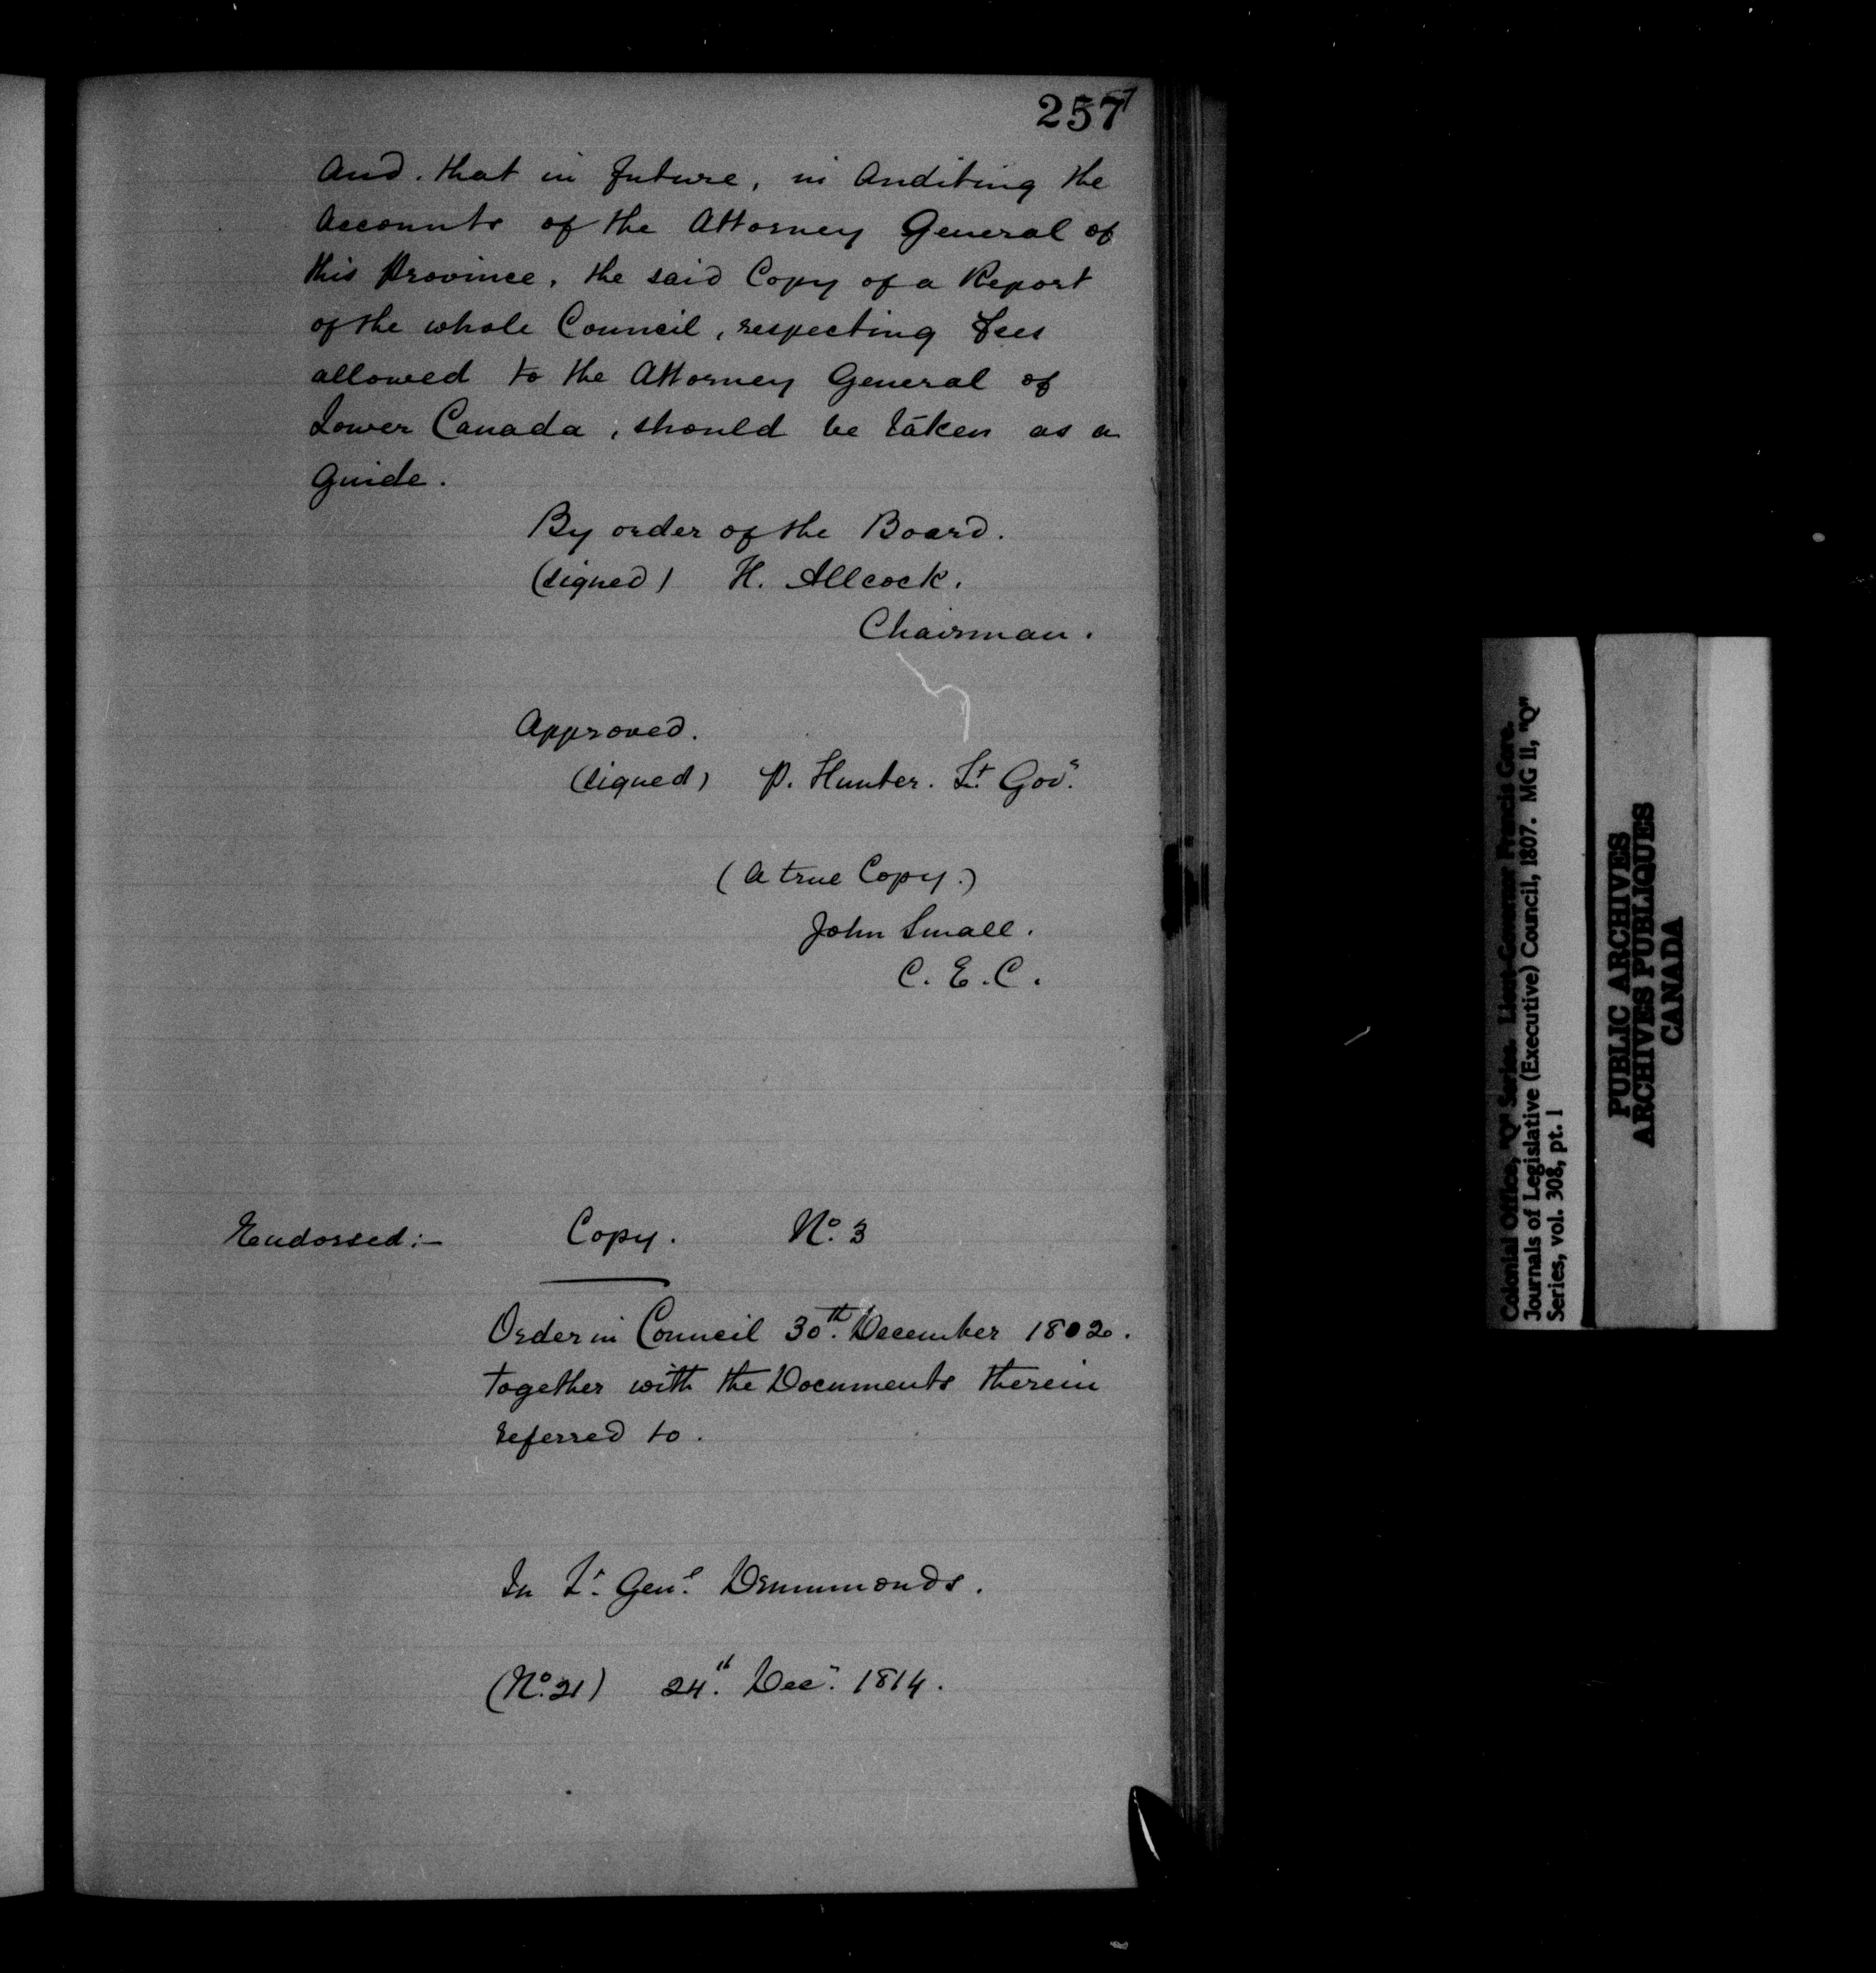 257
And. that in future, in Auditing the
Accounts of the Attorney General of
this Province, the said Copy of a Report
of the whole Council, respecting Fees
allowed to the Attorney General of
Lower Canada, should be taken as a
Guide.
By order of the Board.
(signed) H. Allcock.
Chairman.
Approved.
(signed) P. Hunter. Lt. Govr.
(A true Copy.)
John Small.
C. E. C.
Endorsed:- Copy. No. 3
Order in Council 30th. December 1802.
together with the Documents therein
referred to.
In Lt. Genl. Drummonds.
(No. 21) 24th. Decr. 1814.
Colonial Office, "Q" Series. Lieut-Governor Francis Gore.
Journals of Legislative (Executive) Council, 1807. MG 11, "Q"
Series, vol. 308, pt. 1
PUBLIC ARCHIVES
ARCHIVES PUBLIQUES
CANADA